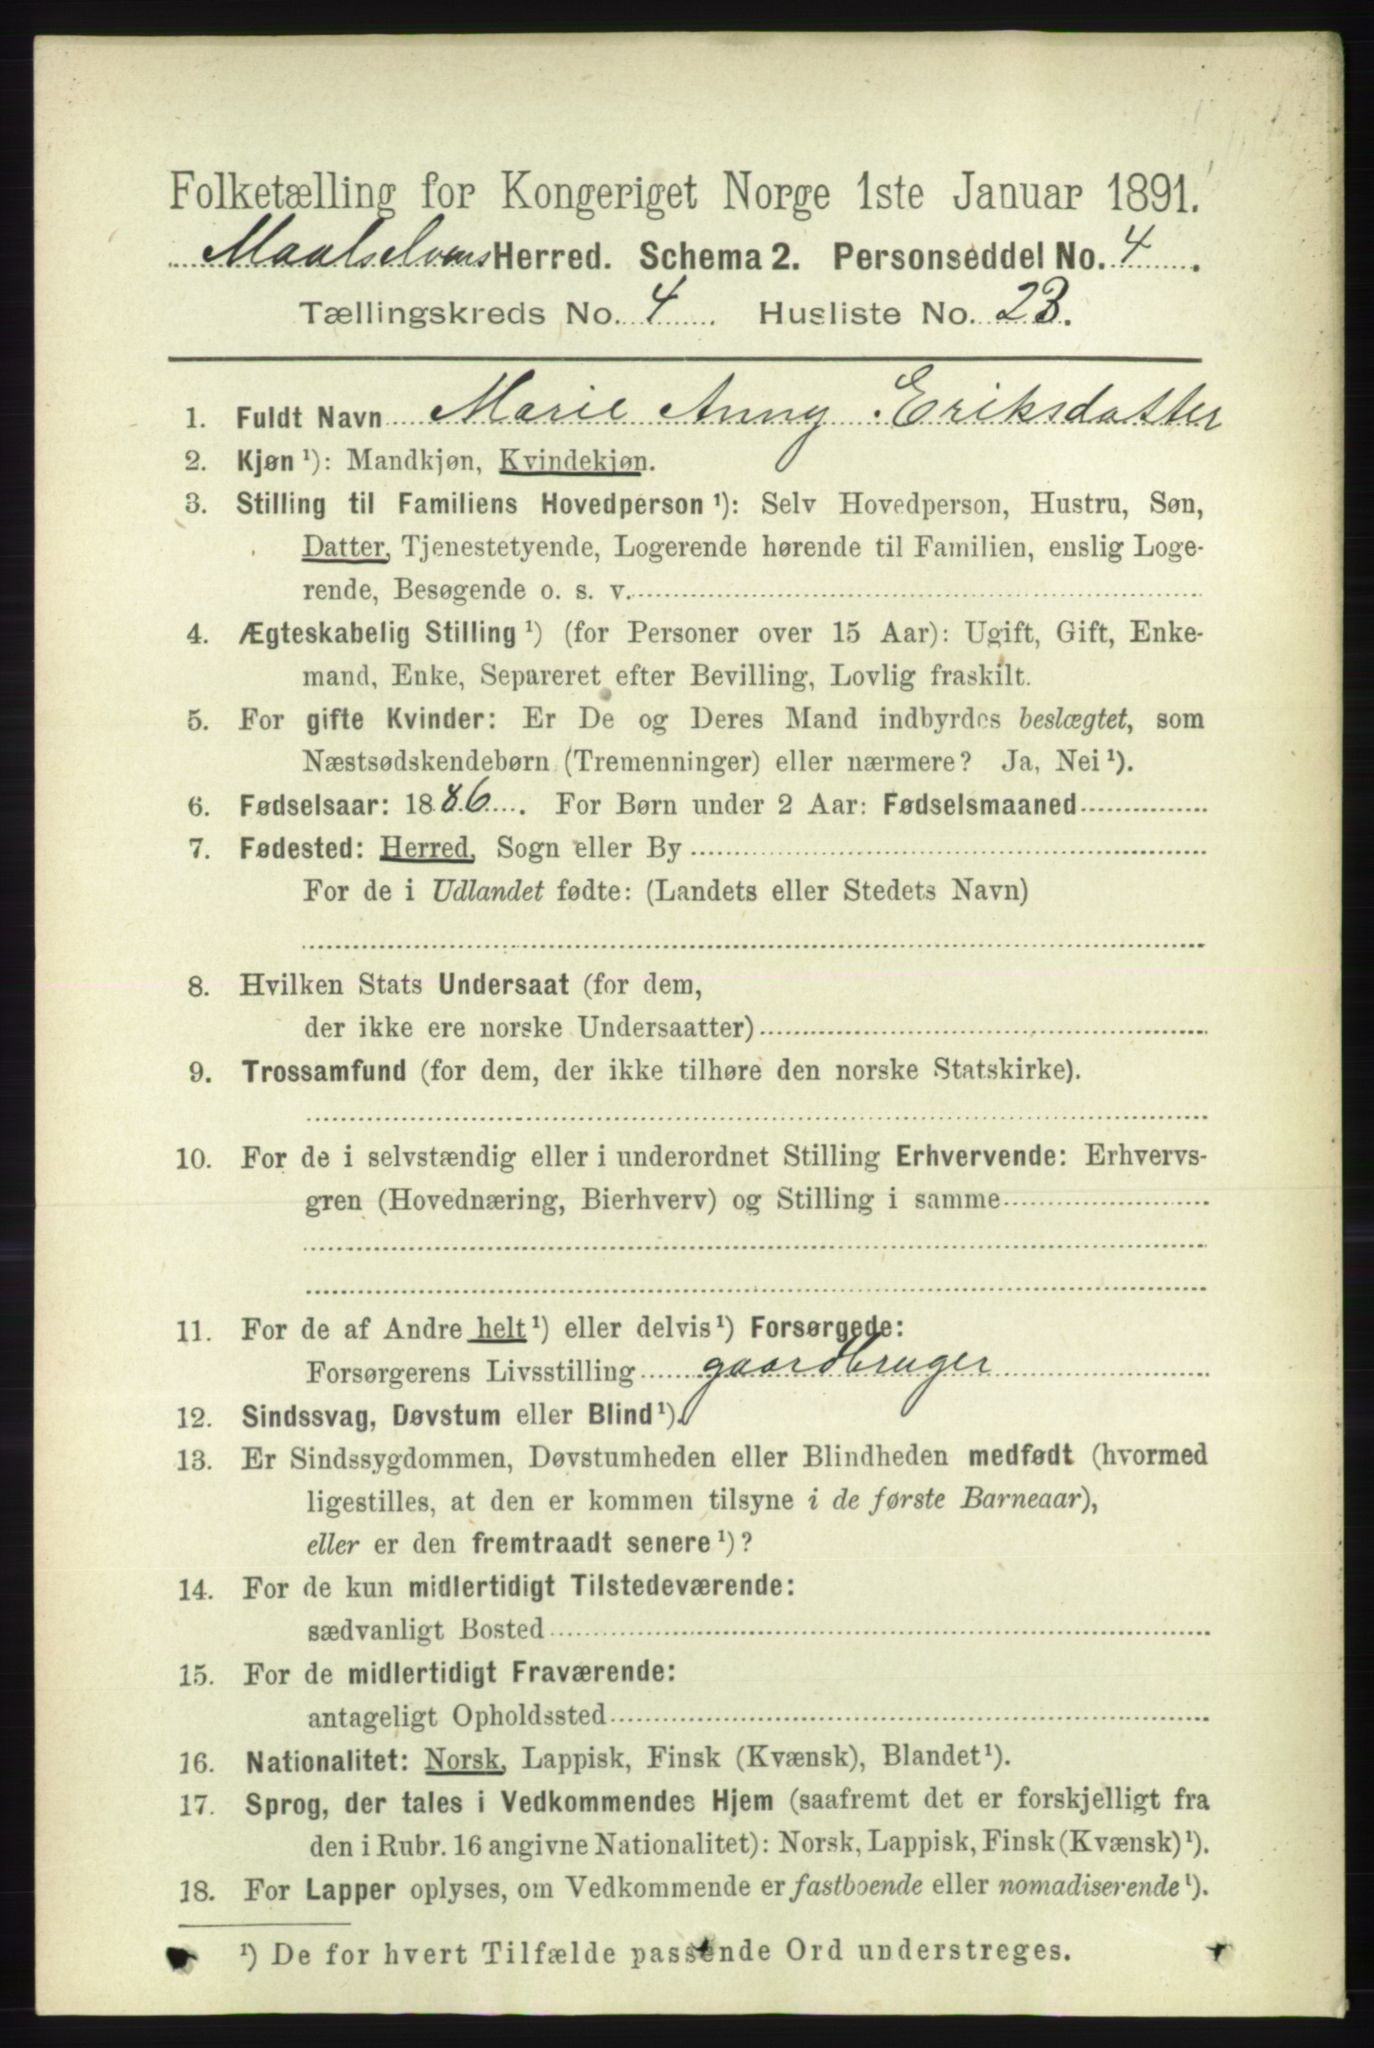 Folketælling for Kongeriget Norge 1ste Januar 1891.
Maalselvens Herred. Schema 2. Personseddel No. 4.
Tællingskreds No. 4. Husliste No. 23.
1. Fuldt Navn Marie Anny Eriksdatter
2. Kjøn ¹): Mandkjøn, Kvindekjøn.
3. Stilling til Familiens Hovedperson ¹): Selv Hovedperson, Hustru, Søn,
Datter, Tjenestetyende, Logerende hørende til Familien, enslig Loge-
rende, Besøgende o. s. v.
4. Ægteskabelig Stilling ¹) (for Personer over 15 Aar): Ugift, Gift, Enke-
mand, Enke, Separeret efter Bevilling, Lovlig fraskilt.
5. For gifte Kvinder: Er De og Deres Mand indbyrdes beslægtet, som
Næstsødskendebørn (Tremenninger) eller nærmere? Ja, Nei ¹).
6. Fødselsaar: 1886. For Børn under 2 Aar: Fødselsmaaned
7. Fødested: Herred, Sogn eller By
For de i Udlandet fødte: (Landets eller Stedets Navn)
8. Hvilken Stats Undersaat (for dem,
der ikke ere norske Undersaatter)
9. Trossamfund (for dem, der ikke tilhøre den norske Statskirke).
10. For de i selvstændig eller i underordnet Stilling Erhvervende: Erhvervs-
gren (Hovednæring, Bierhverv) og Stilling i samme
11. For de af Andre helt ¹) eller delvis ¹) Forsørgede:
Forsørgerens Livsstilling gaardbruger
12. Sindssvag, Døvstum eller Blind ¹).
13. Er Sindssygdommen, Døvstumheden eller Blindheden medfødt (hvormed
ligestilles, at den er kommen tilsyne i de første Barneaar),
eller er den fremtraadt senere ¹)?
14. For de kun midlertidigt Tilstedeværende:
sædvanligt Bosted
15. For de midlertidigt Fraværende:
antageligt Opholdssted
16. Nationalitet: Norsk, Lappisk, Finsk (Kvænsk), Blandet ¹).
17. Sprog, der tales i Vedkommendes Hjem (saafremt det er forskjelligt fra
den i Rubr. 16 angivne Nationalitet): Norsk, Lappisk, Finsk (Kvænsk) ¹).
18. For Lapper oplyses, om Vedkommende er fastboende eller nomadiserende ¹).
¹) De for hvert Tilfælde passende Ord understreges.